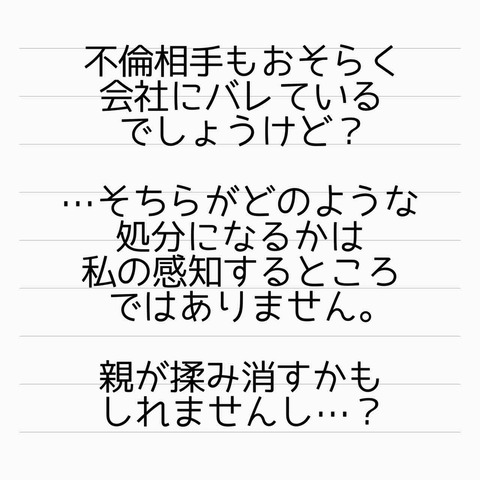 不倫相手もおそらく
会社にバレている
でしょうけど？
…そちらがどのような
処分になるかは
私の感知するところ
ではありません。
親が揉み消すかも
しれませんし…？